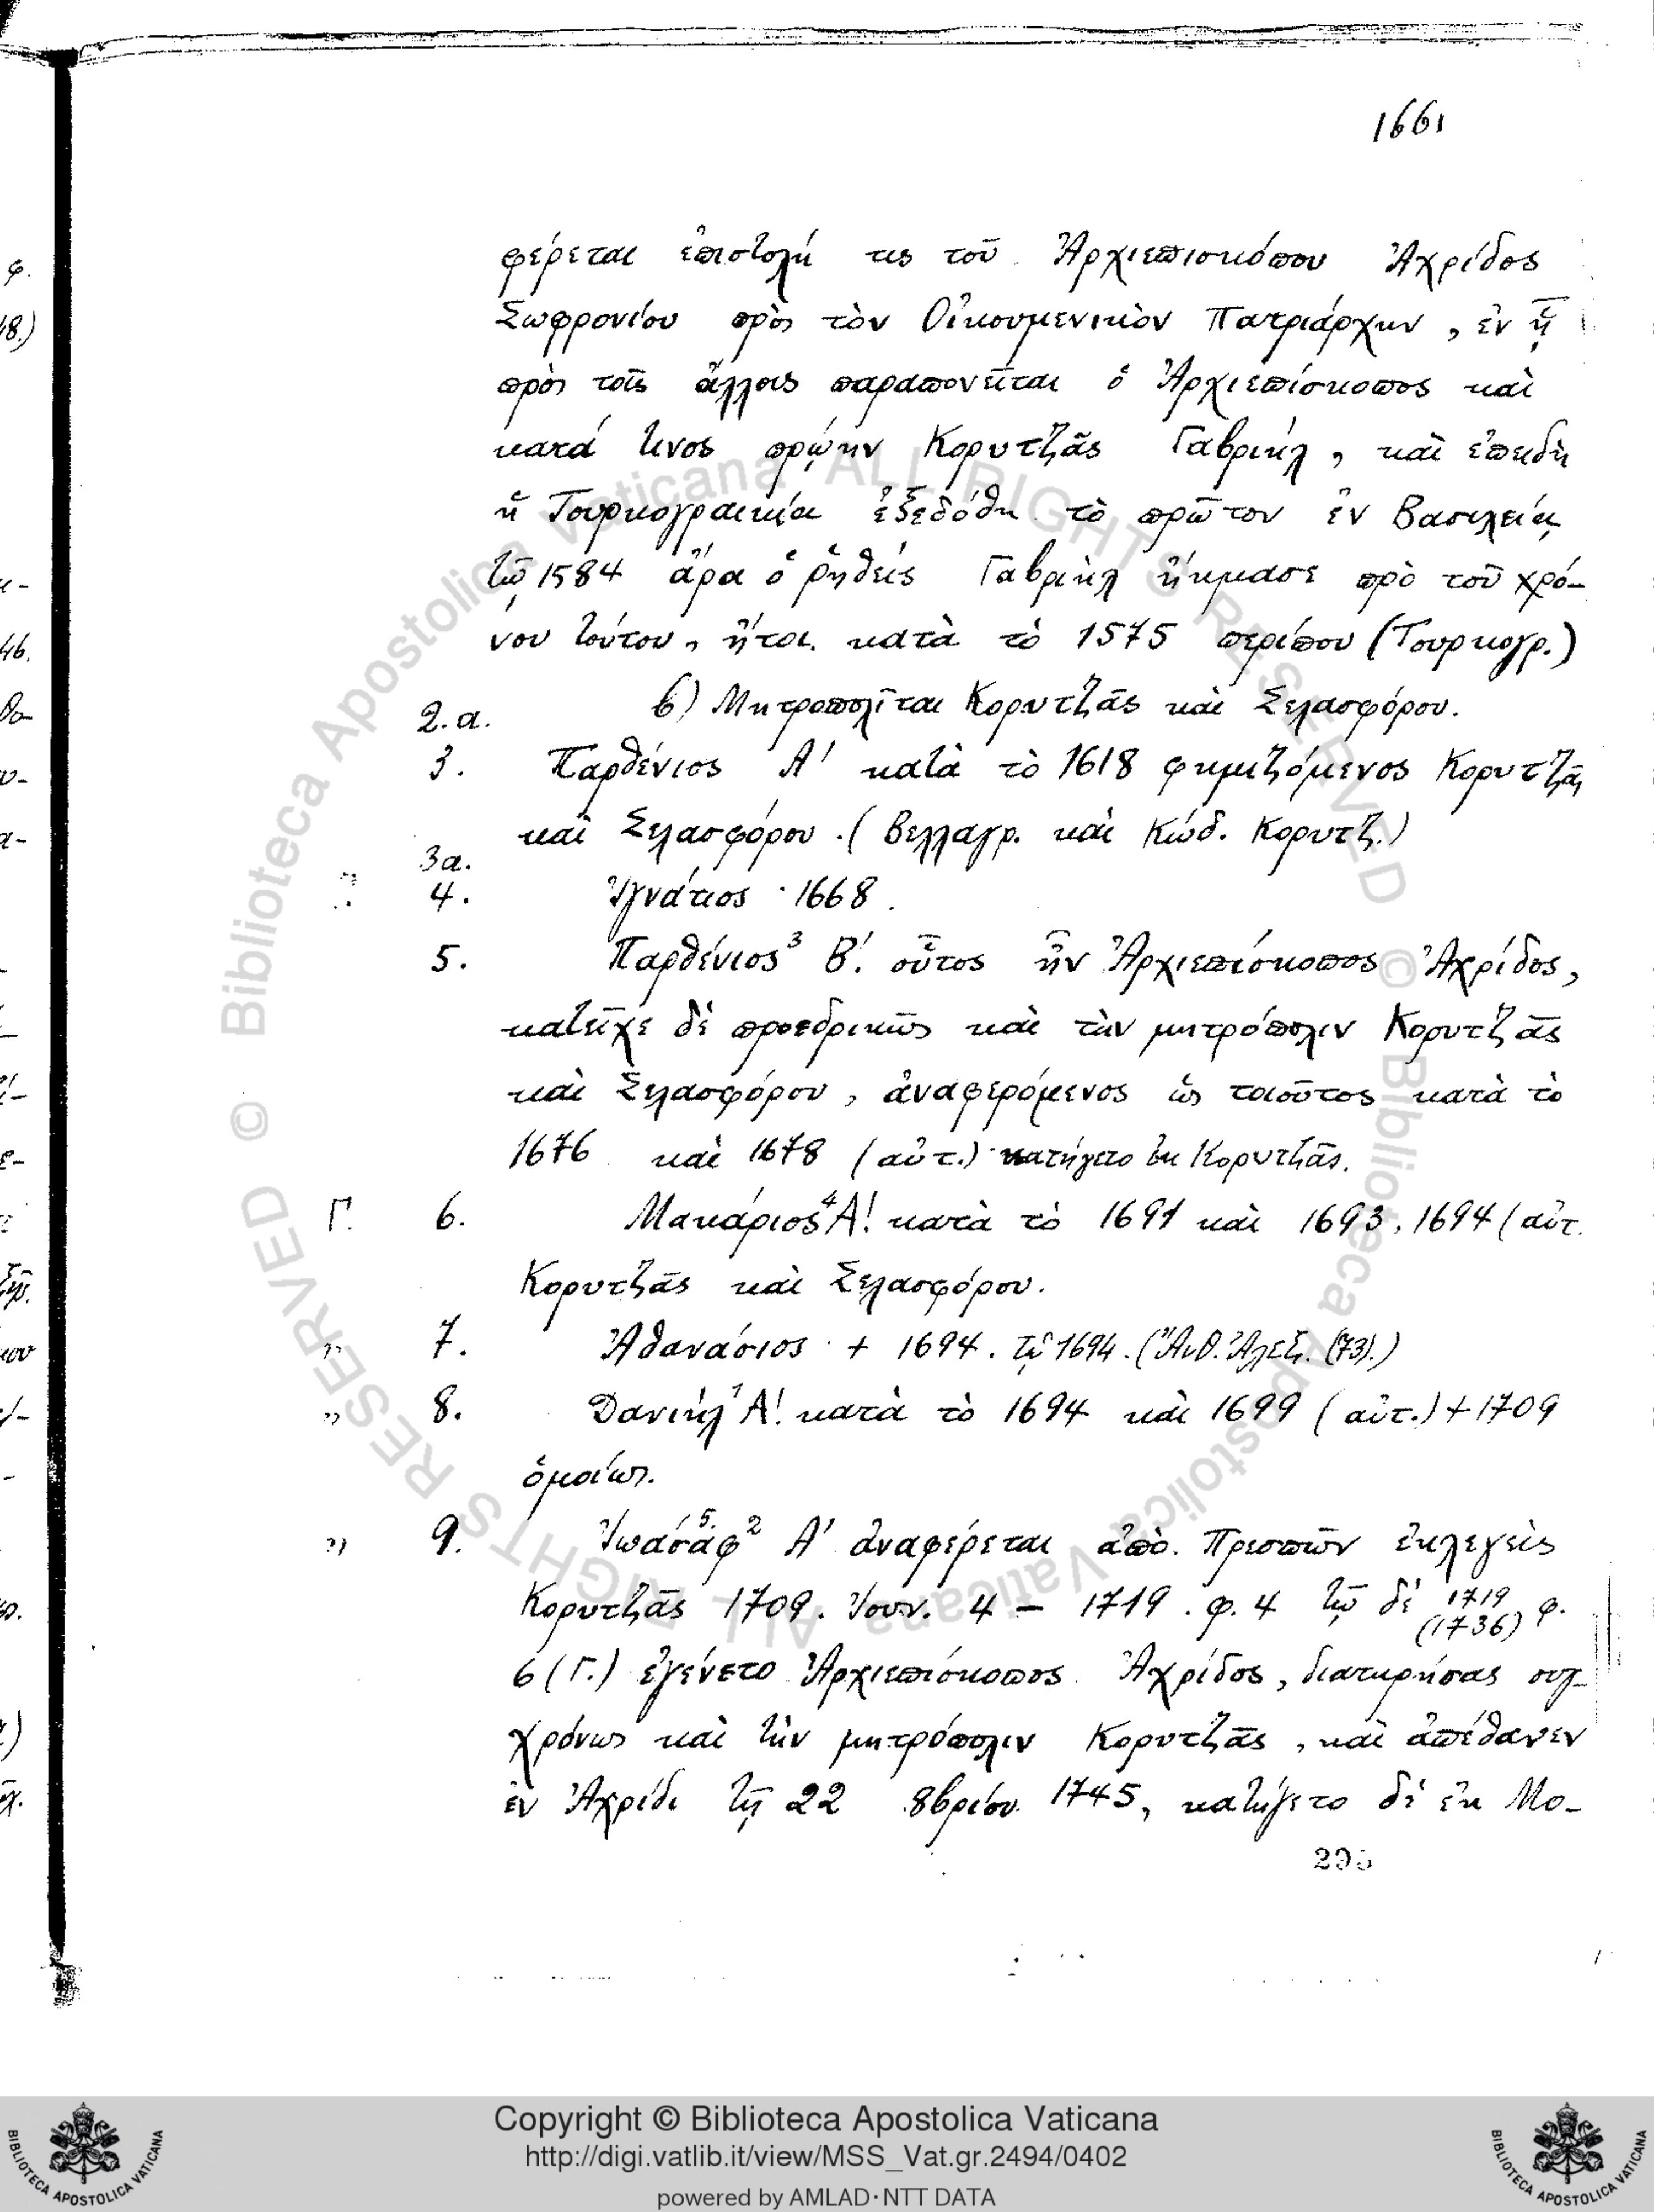 1661
φέρεται ἐπιστολή τις τοῦ Ἀρχιεπισκόπου Ἀχρίδος
Σωφρονίου πρὸς τὸν Οἰκουμενικὸν Πατριάρχην, ἐν ᾗ
πρὸς τοῖς ἄλλοις παραπονεῖται ὁ Ἀρχιεπίσκοπος καὶ
κατά τινος πρῴην Κορυτζᾶς Γαβριήλ, καὶ ἐπειδὴ
ἡ Τουρκογραικία ἐξεδόθη τὸ πρῶτον ἐν Βασιλείᾳ
τῷ 1584 ἄρα ὁ ῥηθείς Γαβριὴλ ἤκμασε πρὸ τοῦ χρό-
νου τούτου, ἤτοι κατὰ τὸ 1575 περίπου (Τουρκογρ.)
2.α. β) Μητροπολῖται Κορυτζᾶς καὶ Σελασφόρου.
3. Παρθένιος Α' κατὰ τὸ 1618 φημιζόμενος Κορυτζᾶς
καὶ Σελασφόρου. (Βελλαγρ. καὶ Κώδ. Κορυτζ.)
3α.
4. Ἰγνάτιος 1668.
5. Παρθένιος³ Β'. οὗτος ἦν Ἀρχιεπίσκοπος Ἀχρίδος,
κατεῖχε δὲ προεδρικῶς καὶ τὴν μητρόπολιν Κορυτζᾶς
καὶ Σελασφόρου, ἀναφερόμενος ὡς τοιοῦτος κατὰ τὸ
1676 καὶ 1678 (αὐτ.) κατήγετο ἐκ Κορυτζᾶς.
Γ. 6. Μακάριος⁴ Α'. κατὰ τὸ 1691 καὶ 1693, 1694 (αὐτ.
Κορυτζᾶς καὶ Σελασφόρου.
,, 7. Ἀθανάσιος + 1694. τῷ 1694. (Ἀνθ. Ἀλεξ. (73).)
,, 8. Δανιήλ¹ Α'. κατὰ τὸ 1694 καὶ 1699 (αὐτ.) + 1709
ὁμοίως.
,, 9. Ἰωάσαφ⁵ ² Α' ἀναφέρεται ἀπὸ Πρεσπῶν ἐκλεγεὶς
Κορυτζᾶς 1709. Ἰουν. 4 – 1719. φ. 4 τῷ δὲ 1719 (1736) φ.
6 (Γ.) ἐγένετο Ἀρχιεπίσκοπος Ἀχρίδος, διατηρήσας συγ-
χρόνως καὶ τὴν μητρόπολιν Κορυτζᾶς, καὶ ἀπέθανεν
ἐν Ἀχρίδι τῇ 22 8βρίου 1745, κατήγετο δὲ ἐκ Μο-
Copyright © Biblioteca Apostolica Vaticana
http://digi.vatlib.it/view/MSS_Vat.gr.2494/0402
powered by AMLAD·NTT DATA